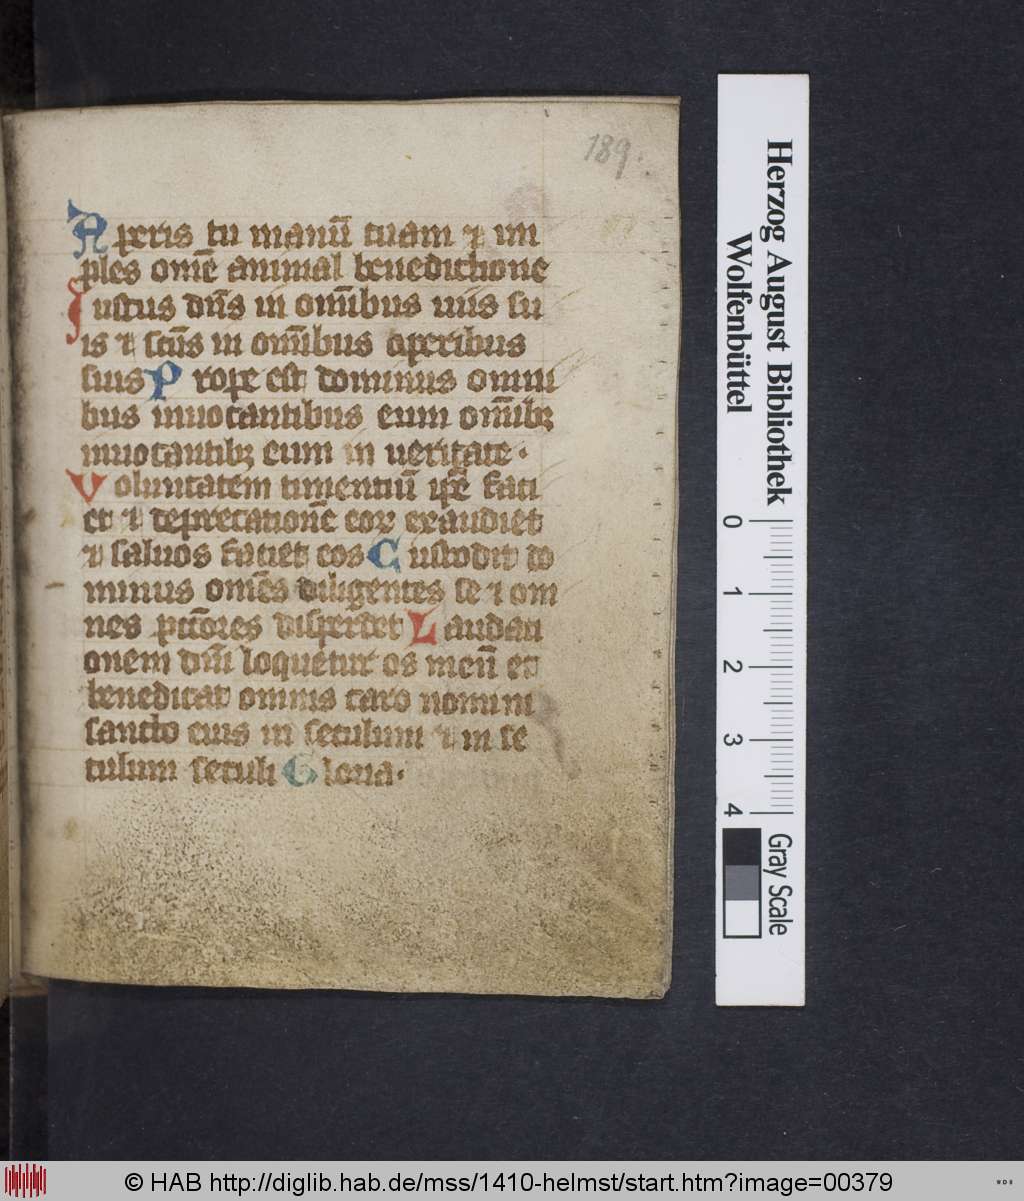 189.
Aperis tu manū tuam ⁊ im
ples om̄e animal benedictione
Iustus dn̄s in om̄ibus uiis su
is ⁊ sc̄us in om̄ibus operibus
suis Prope est dominus omni
bus inuocantibus eum om̄ibꝫ
inuocantibꝫ eum in ueritate.
Voluntatem timentiū ip̄e faci
et ⁊ deprecationē eoꝝ exaudiet
⁊ saluos faciet eos Custodit do
minus om̄es diligentes se ⁊ om
nes pctōres disperdet Laudati
onem dn̄i loquetur os meū et
benedicat omnis caro nomini
sancto eius in seculum ⁊ in se
culum seculi Gloria.
Herzog August Bibliothek
Wolfenbüttel
0 1 2 3 4
Gray Scale
© HAB http://diglib.hab.de/mss/1410-helmst/start.htm?image=00379